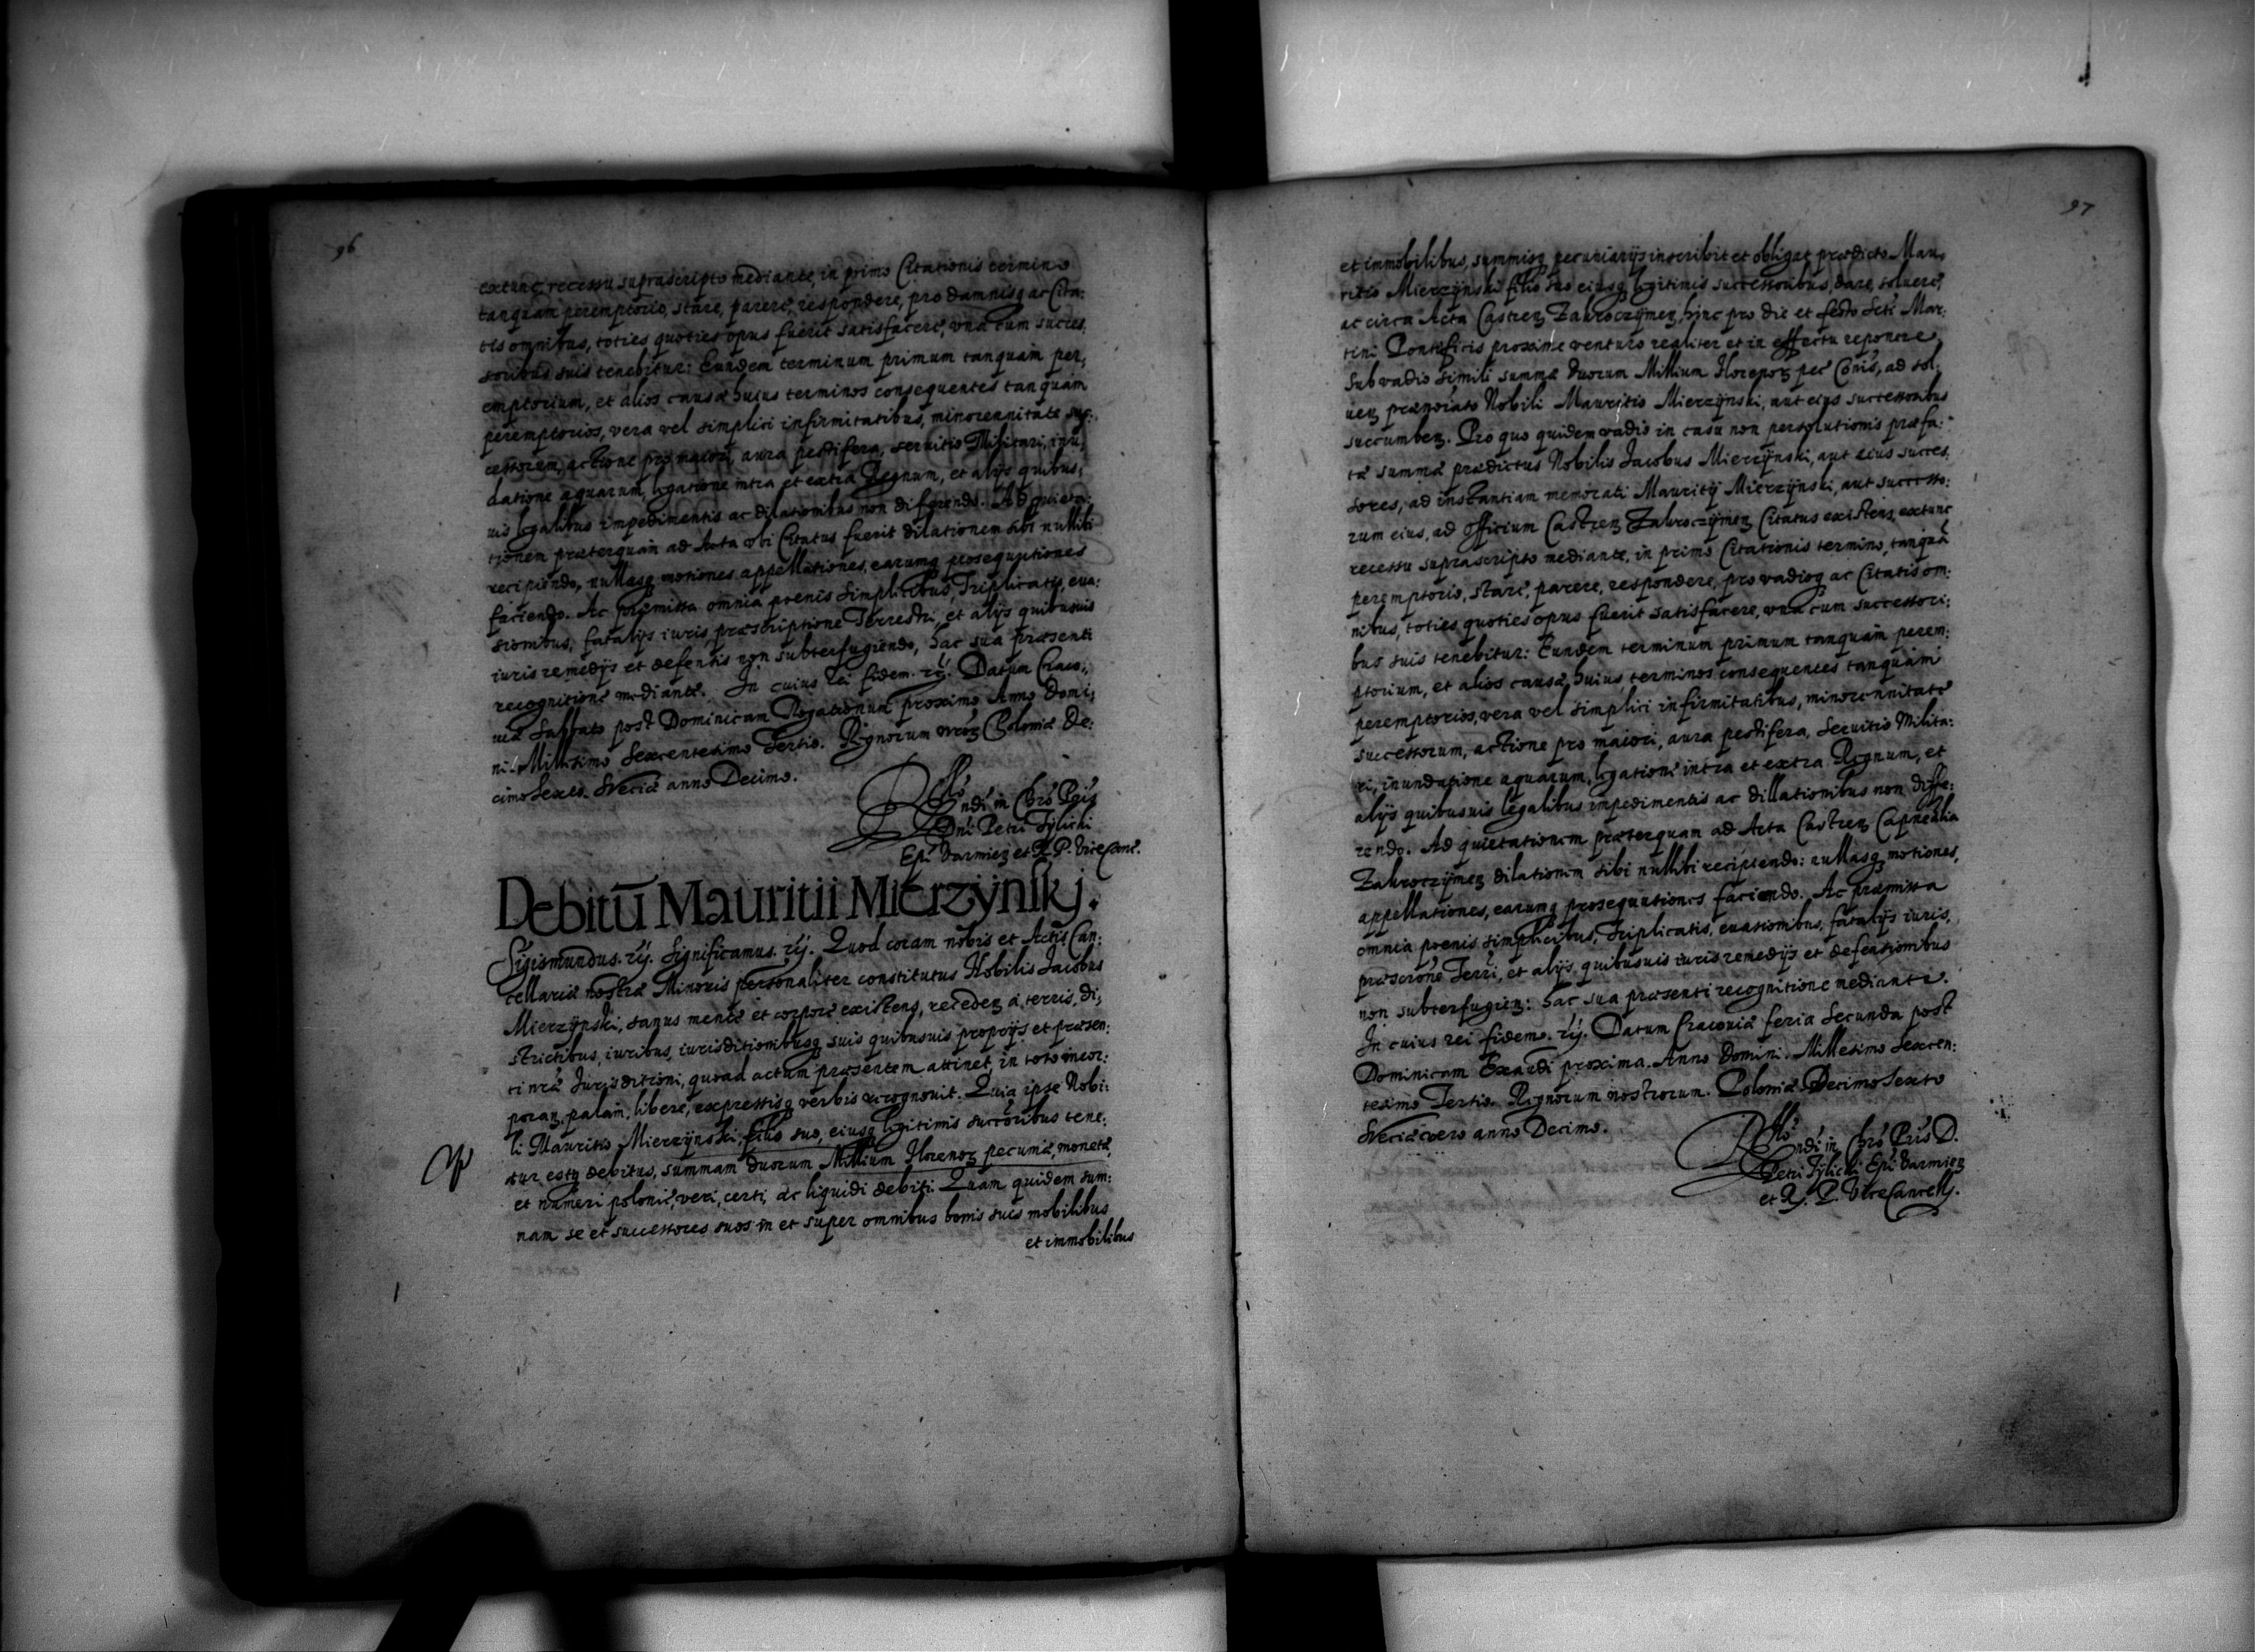 96
extunc recessu suprascripto mediante, in primo Citationis termino
tanquam peremptorio, stare, parere, respondere, pro damnisq ac Cita:
tis omnibus, toties quoties opus fuerit satisfacere, una cum succes,
soribus suis tenebitur: Eundem terminum primum tanquam per,
emptorium, et alios causæ huius terminos consequentes tanquam
peremptorios, vera vel simplici infirmitatibus, minorennitate suc:
cessorum, actione pro maiori, aura pestifera, seruitio Militari, inu,
datione aquarum, legatione intra et extra Regnum, et alÿs quibus,
uis legalibus impedimentis ac dilationibus non diferendo. Ad quieta:
tionem præterquam ad Acta ubi Citatus fuerit dilationem sibi nullibi
recipiendo, nullasq motiones appellationes, earumq prosequutiones
faciendo. Ac præmissa omnia poenis simplicibus, Triplicatis, eua:
sionibus, fatalÿs iuris, præscriptione Terrestri, et alÿs quibusuis
iuris remedÿs et defensis non subterfugiendo, hac sua præsenti
recognitione mediante. In cuius rei fidem. rÿ. Datum Craco:,
uiæ Sabbato post Dominicam Rogationum proximo Anno Domi,
ni. Millesimo Sexcentesimo Tertio. Regnorum nrorz Poloniæ De:
cimo Sexto. Sveciæ anno Decimo.
Rllo
ndi in Chro Pris
Dni Petri Tÿlicki
Epi Varmienz et R. P. ViceCanc.
Debitū Mauritii Mierzÿnſkj.
Sigismundus. rÿ. Significamus. rÿ. Quod coram nobis et Actis Can:
cellariæ nostræ Minoris personaliter constitutus Nobilis Jacobus
Mierzÿnski, sanus mente et corpore existens, recedenz a terris, di,
strictibus, iuribus, iurisditionibusq suis quibusuis proprÿs et præsen:
ti nræ Jurisditioni, quoad actum præsentem attinet, in toto incor:
poranz, palam, libere, expressisq verbis recognouit. Quia ipse Nobi:
li Mauritio Mierzÿnski, filio suo, eiusq legitimis succoribus tene:
tur estq debitus, summam duorum Millium Florenorz pecuniæ, monetæ,
et numeri polonic, veri, certi, ac liquidi debiti. Quam quidem sum:
mam se et successores suos in et super omnibus bonis suis mobilibus
et immobilibus
97
et immobilibus, summisq pecuniarÿs inscribit et obligat prædicto Mau,
ritio Mierzÿnski filio suo eiusq legitimis successoribus, dare, soluere,
ac circa Acta Castrenz Zakroczÿmenz, hinc pro die et festo Scti Mar:
tini Pontificis proxime venturo realiter et in effectu reponere,
sub vadio simili summæ duorum Millium Floreporz pec Conis, ad sol:
uenz prænotato Nobili Mauritio Mierzÿnski, aut eius successoribus
succumbenz. Pro quo quidem vadio in casu non persolutionis præfa:
tæ summæ prædictus Nobilis Jacobus Mierzÿnski, aut eius succes,
sores, ad instantiam memorati Mauritÿ Mierzÿnski, aut successo:
rum eius, ad officium Castrenz Zakroczÿmenz Citatus existens, extunc
recessu suprascripto mediante, in primo Citationis termino, tanquā
peremptorio, stare, parere, respondere, pro vadioq ac Citatis om:
nibus, toties quoties opus fuerit satisfacere, una cum successori:
bus suis tenebitur: Eundem terminum primum tanquam perem:
ptorium, et alios causæ, huius, terminos consequentes tanquam
peremptorios, vera vel simplici infirmitatibus, minorennitate
successorum, actione pro maiori, aura pestifera, Seruitio Milita:
ri, inundatione aquarum, legatione intra et extra Regnum, et
alÿs quibusuis legalibus impedimentis ac dillationibus non diffe:
rendo. Ad quietationem præterquam ad Acta Castrenz Capnealia
Zakroczÿmenz dilationem sibi nullibi recipiendo: nullasq motiones,
appellationes, earumq prosequutiones faciendo. Ac præmissa
omnia poenis simplicibus, Triplicatis, euasionibus, fatalÿs iuris,
præscrone Terri, et alÿs quibusuis iuris remedÿs et defensionibus
non subterfugienz: hac sua præsenti recognitione mediante.
In cuius rei fidem. rÿ. Datum Cracouiæ feria Secunda post
Dominicam Exaudi proxima. Anno Domini. Millesimo Sexcen:
tesimo Tertio. Regnorum nostrorum. Poloniæ Decimo Sexto
Sveciæ vero anno Decimo.
Rllo
ndi in Chro Pris D.
Petri Tÿlicki Epi Varmienz
et R. P. ViceCancellÿ.